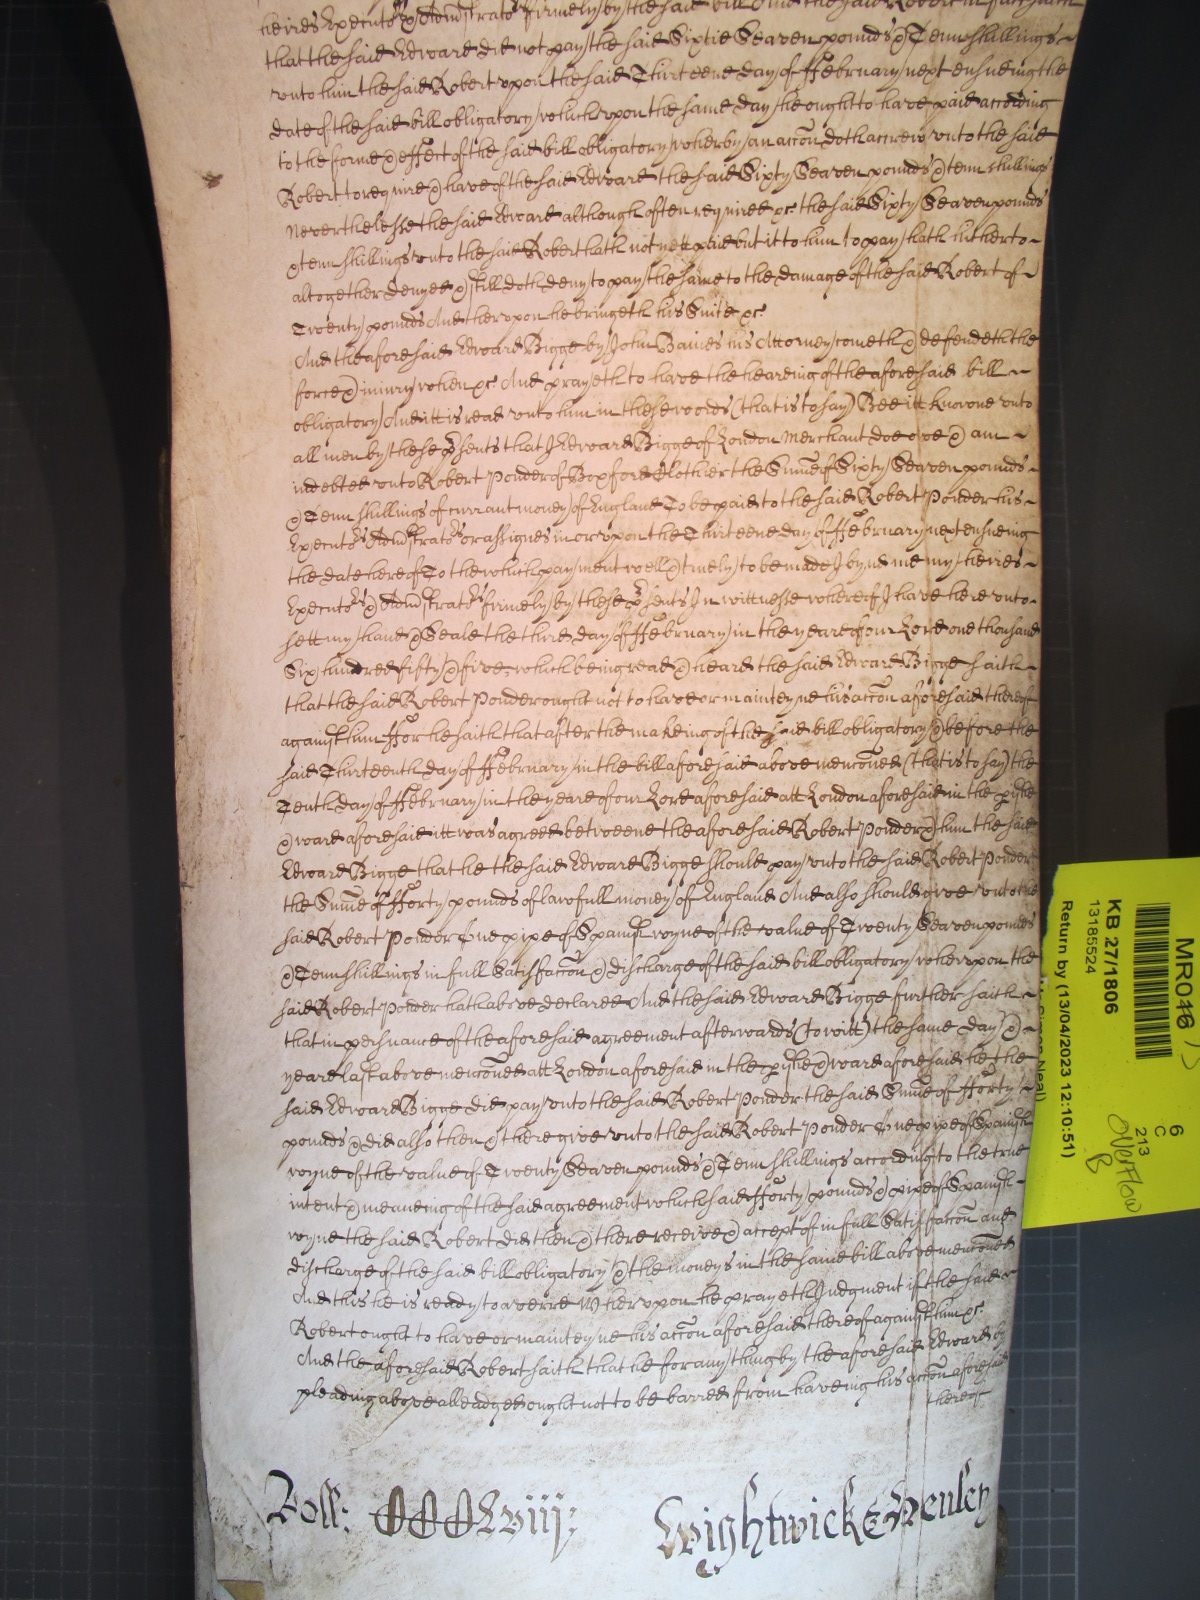 heires Executors & Administrators firmely by the said bill And the said Robert in fact saith
that the said Edward did not pay the said Sixtie Seaven pounds & Tenn shillings
unto him the said Robert upon the said Thirteene day of February next ensueing the
date of the said bill obligatory which upon the same day he ought to have paid according
to the forme & effect of the said bill obligatory wherby an accon doth accrew unto the said
Robert to require & have of the said Edward the said Sixty Seaven pounds & tenn shillings
Neverthelesse the said Edward although often required &c the said Sixty Seaven pounds
& tenn shillings unto the said Robert hath not yett paid but it to him to pay hath hitherto
altogether denyed & still doth deny to pay the same to the damage of the said Robert of
Twenty pounds And therupon he bringeth his Suite &c
And the aforesaid Edward Bigge by John Baines his Attorney cometh & defendeth the
force & iniury when &c And prayeth to have the heareing of the aforesaid bill
obligatory And itt is read unto him in these words (that is to say) Bee itt knowne unto
all men by these psents that I Edward Bigge of London Merchant doe owe & am
indebted unto Robert Ponder of Boxford Clothier the Sume of Sixty Seaven pounds
& Tenn shillings of currant money of England To be paid to the said Robert Ponder his
Executors Administrators or assignes in or upon the Thirteene day of ffebruary next ensueing
the date hereof To the which payment well & truely to be made I bynd me my heires
Executors & Administrators firmely by these psents In wittnesse whereof I have here unto
sett my hand & Seale the third day of ffebruary in the yeare of our Lord one thousand
Six hundred fifty & five, which being read & heard the said Edward Bigge saith
that the said Robert Ponder ought not to have or mainteyne his accon aforesaid thereof
against him ffor he saith that after the makeing of the said bill obligatory & before the
said Thirteenth day of ffebruary in the bill aforesaid above menconed (that is to say) the
Tenth day of ffebruary in the yeare of our Lord aforesaid att London aforesaid in the pishe
& ward aforesaid itt was agreed betweene the aforesaid Robert Ponder & him the said
Edward Bigge that he the said Edward Bigge should pay unto the said Robert Ponder
the Sume of fforty pounds of lawfull money of England And also should give unto the
said Robert Ponder One pipe of Spanish wyne of the value of Twenty Seaven pounds
& Tenn shillings in full Satisfaccon & discharge of the said bill obligatory wherupon the
said Robert Ponder hath above declared And the said Edward Bigge further saith
that in persuance of the aforesaid agreement afterwards (to witt) the same day &
yeare last above menconed att London aforesaid in the pishe & ward aforesaid he the
said Edward Bigge did pay unto the said Robert Ponder the said Sume of fforty
pounds & did also then & there give unto the said Robert Ponder One pipe of Spanish
wyne of the value of Twenty Seaven pounds & Tenn shillings according to the true
intent & meaneing of the said agreement which said fforty pounds & pipe of Spanish
wyne the said Robert did then & there receive & accept of in full Satisfaccon and
discharge of the said bill obligatory & the moneys in the same bill above menconed
And this he is ready to averre Wherupon he prayeth Judgment if the said
Robert ought to have or mainteyne his accon aforesaid thereof against him &c
And the aforesaid Robert saith that he for any thing by the aforesaid Edward by
pleading above alleadged ought not to be barred from haveing his accon aforesaid
thereof
Roll: CCCCLviij:
Wightwick & Henley
MR046
KB 27/1806
13185524
Return by (13/04/2023 12:10:51)
6
C
213
overflow
B